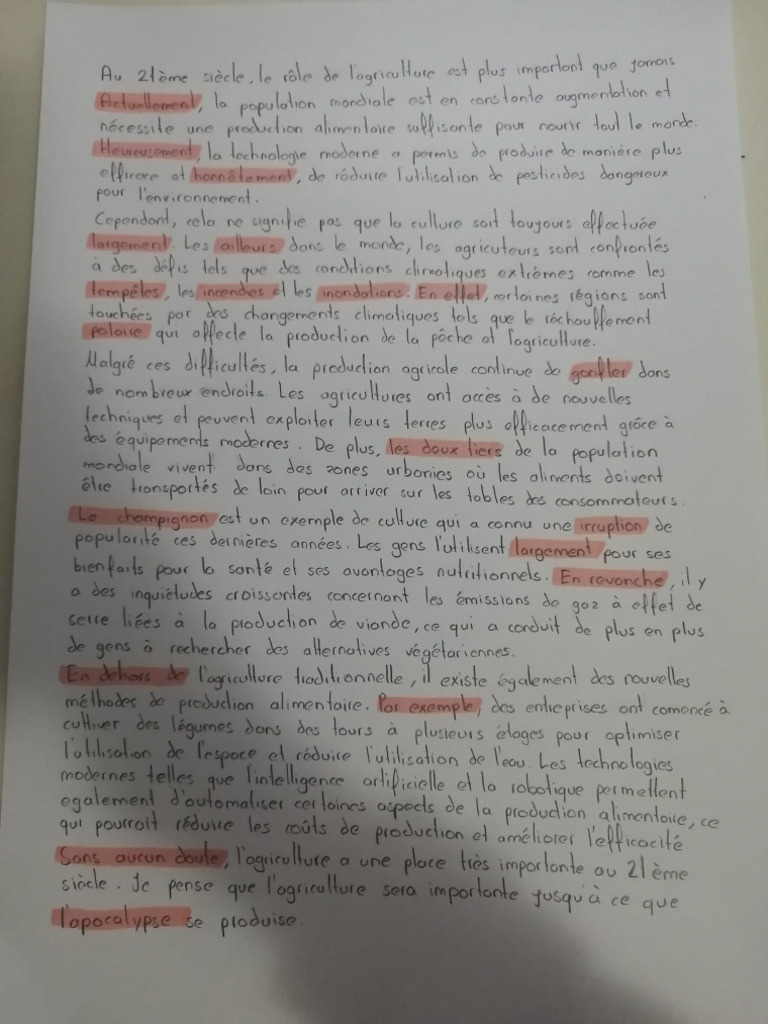 Au 21ème siècle, le rôle de l'agriculture est plus important que jamais
Actuellement, la population mondiale est en constante augmentation et
nécessite une production alimentaire suffisante pour nourir tout le monde.
Heureusement, la technologie moderne a permis de produire de manière plus
efficace et honnêtement, de réduire l'utilisation de pesticides dangereux
pour l'environnement.
Cependant, cela ne signifie pas que la culture soit touyours effectuée
largement. Les ailleurs dans le monde, les agricuteurs sont confrontés
à des défis tels que des conditions climatiques extrêmes comme les
tempêtes, les incendies et les inondations. En effet, certaines régions sont
touchées par des changements climatiques tels que le réchauffement
polaire qui affecte la production de la pêche et l'agriculture.
Malgré ces difficultés, la production agricole continue de gonfler dans
de nombreux endroits. Les agricultures ont accès à de nouvelles
techniques et peuvent exploiter leurs terres plus efficacement grâce à
des équipements modernes. De plus, les deux tiers de la population
mondiale vivent dans des zones urbanies où les aliments doivent
être transportés de loin pour arriver sur les tables des consommateurs.
Le champignon est un exemple de culture qui a connu une irruption de
popularité ces dernières années. Les gens l'utilisent largement pour ses
bienfaits pour la santé et ses avantages nutritionnels. En revanche, il y
a des inquiétudes croissantes concernant les émissions de gaz à effet de
serre liées à la production de viande, ce qui a conduit de plus en plus
de gens à rechercher des alternatives végétariennes.
En dehors de l'agriculture traditionnelle, il existe également des nouvelles
méthodes de production alimentaire. Par exemple, des entreprises ont comencé à
cultiver des légumes dans des tours à plusieurs étages pour optimiser
l'utilisation de l'espace et réduire l'utilisation de l'eau. Les technologies
modernes telles que l'intelligence artificielle et la robotique permettent
egalement d'automatiser certaines aspects de la production alimentaire, ce
qui pourrait réduire les coûts de production et améliorer l'efficacité
Sans aucun doute, l'agriculture a une place très importante au 21ème
siècle. Je pense que l'agriculture sera importante jusqu'à ce que
l'apocalypse se produise.